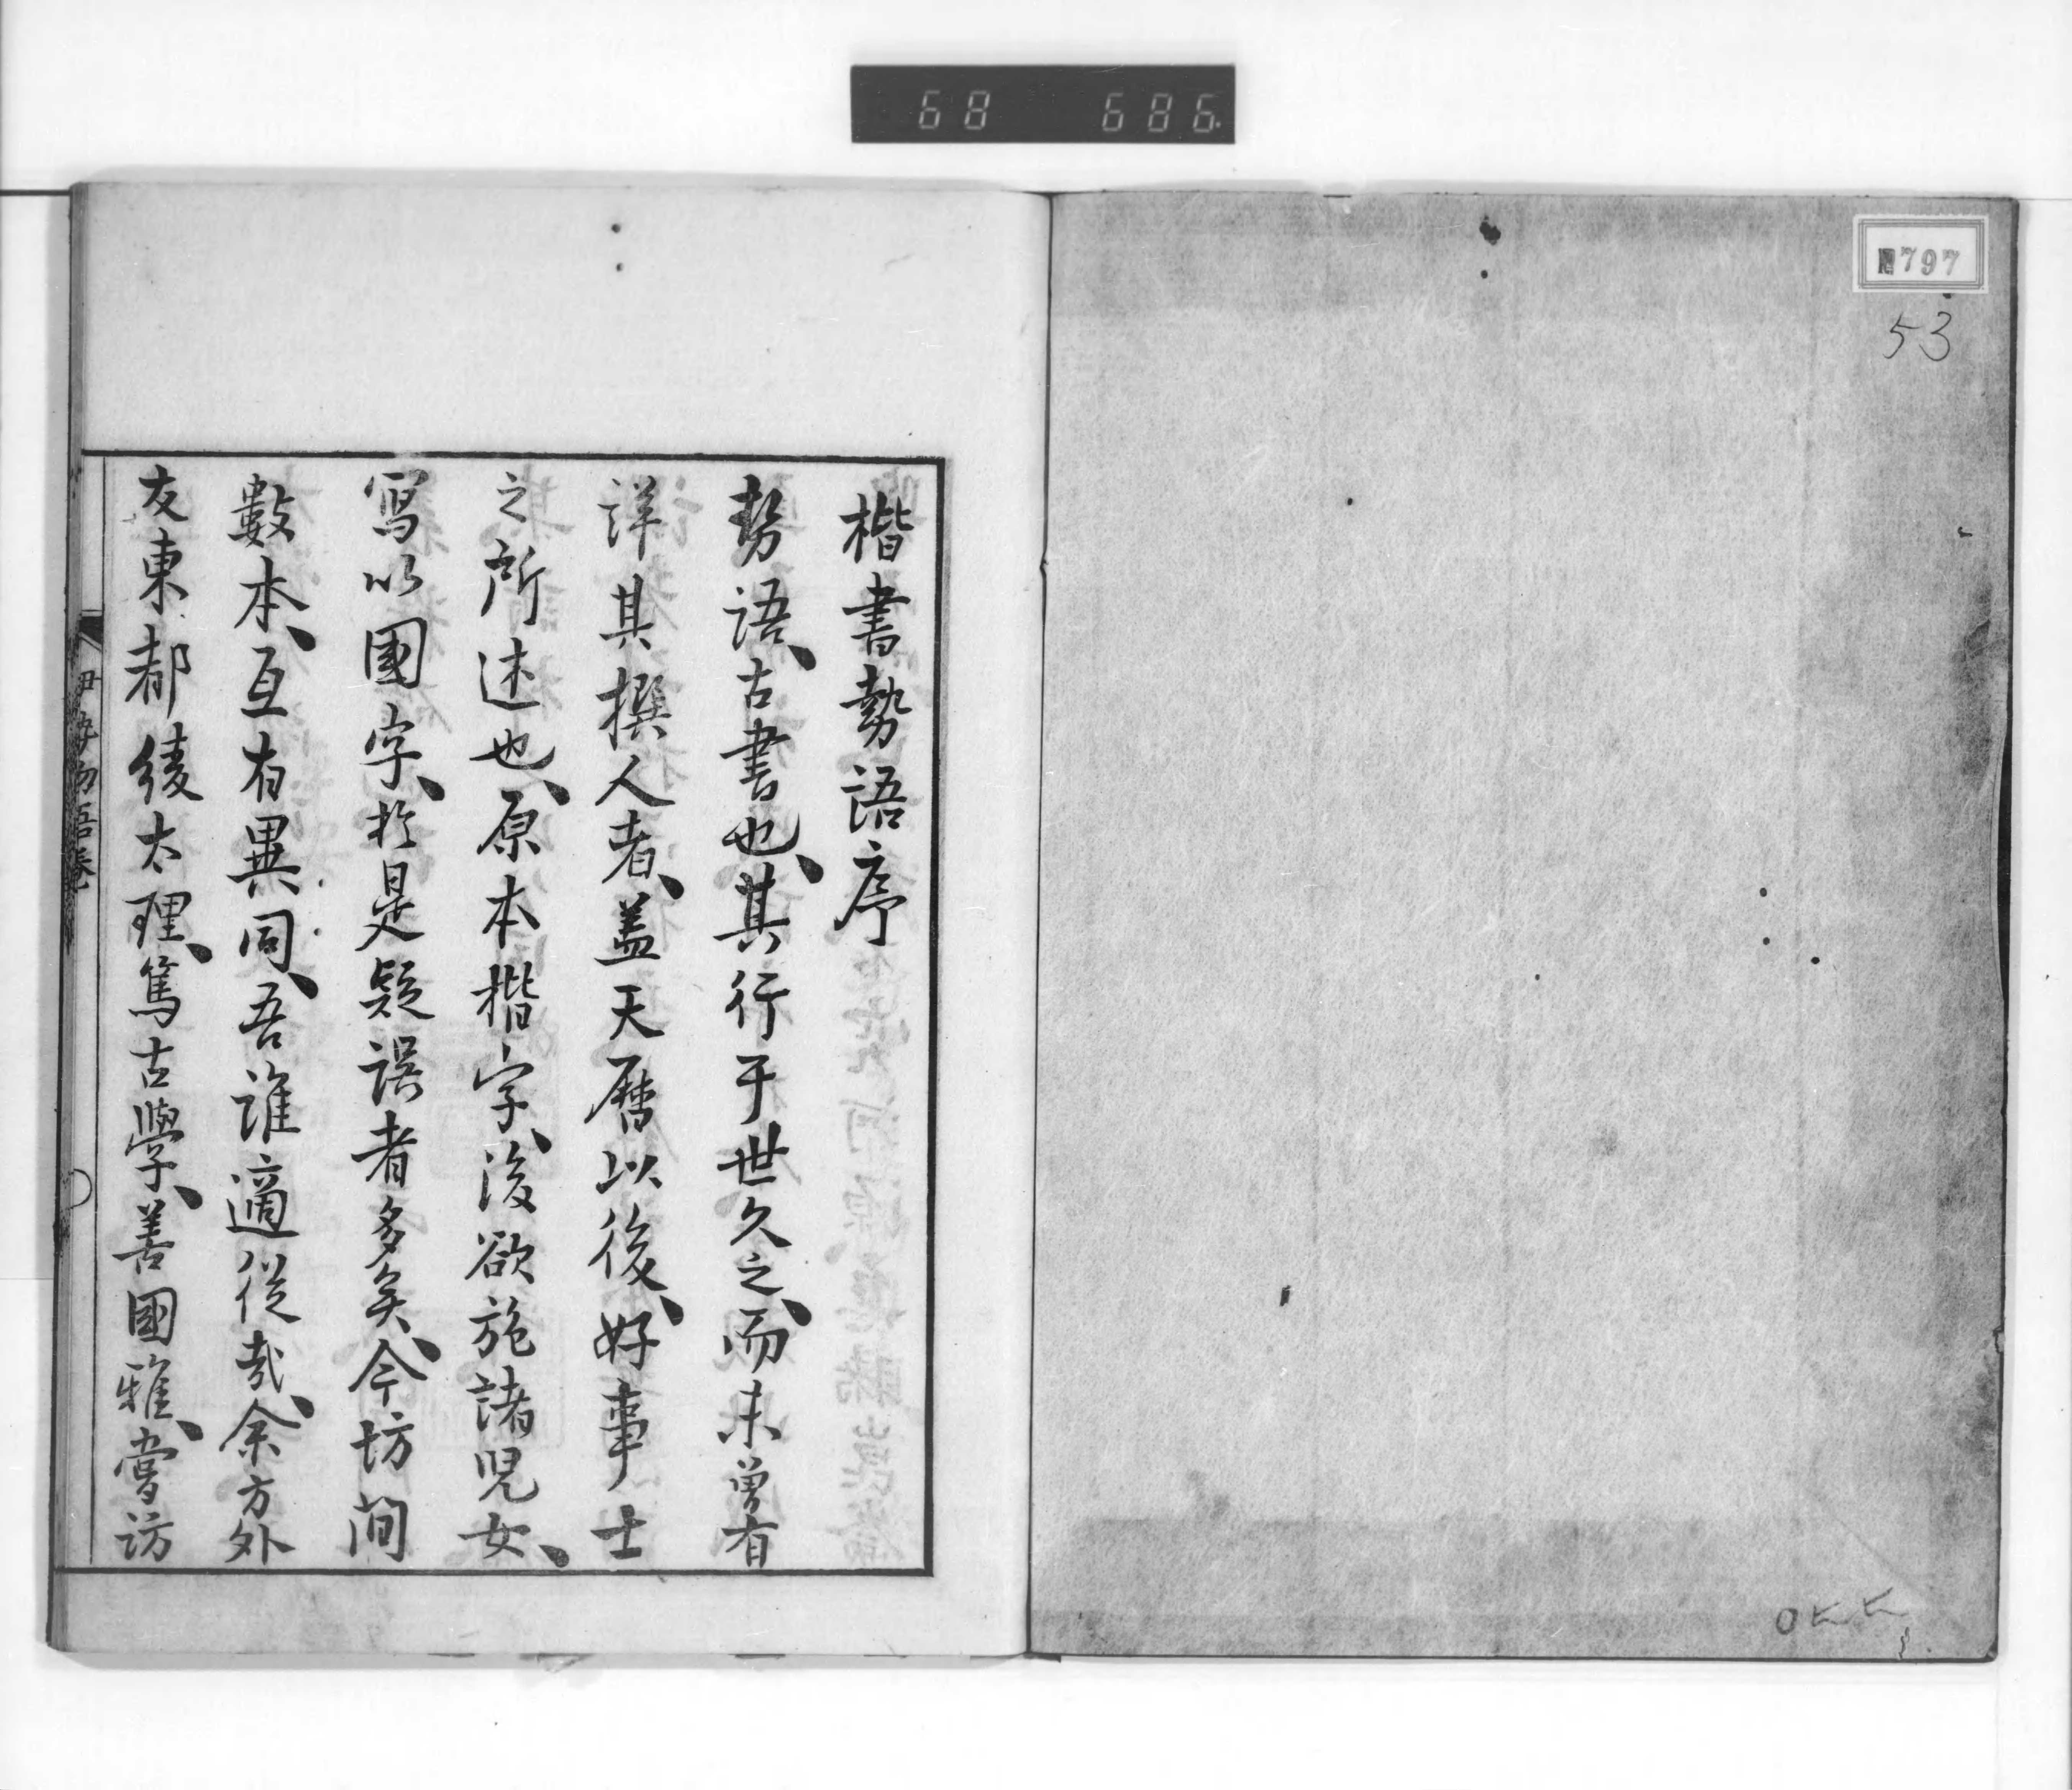 68 686
797
53
楷書勢語序
勢語、古書也、其行于世久之、而未曽有
詳其撰人者、蓋天曆以後、好事士
之所述也、原本楷字、後欲施諸児女、
寫以國字、於是疑誤者多矣、今坊間
數本、互有異同、吾誰適従哉、余方外
友東都綾太理、篤古學、善國雅、嘗訪